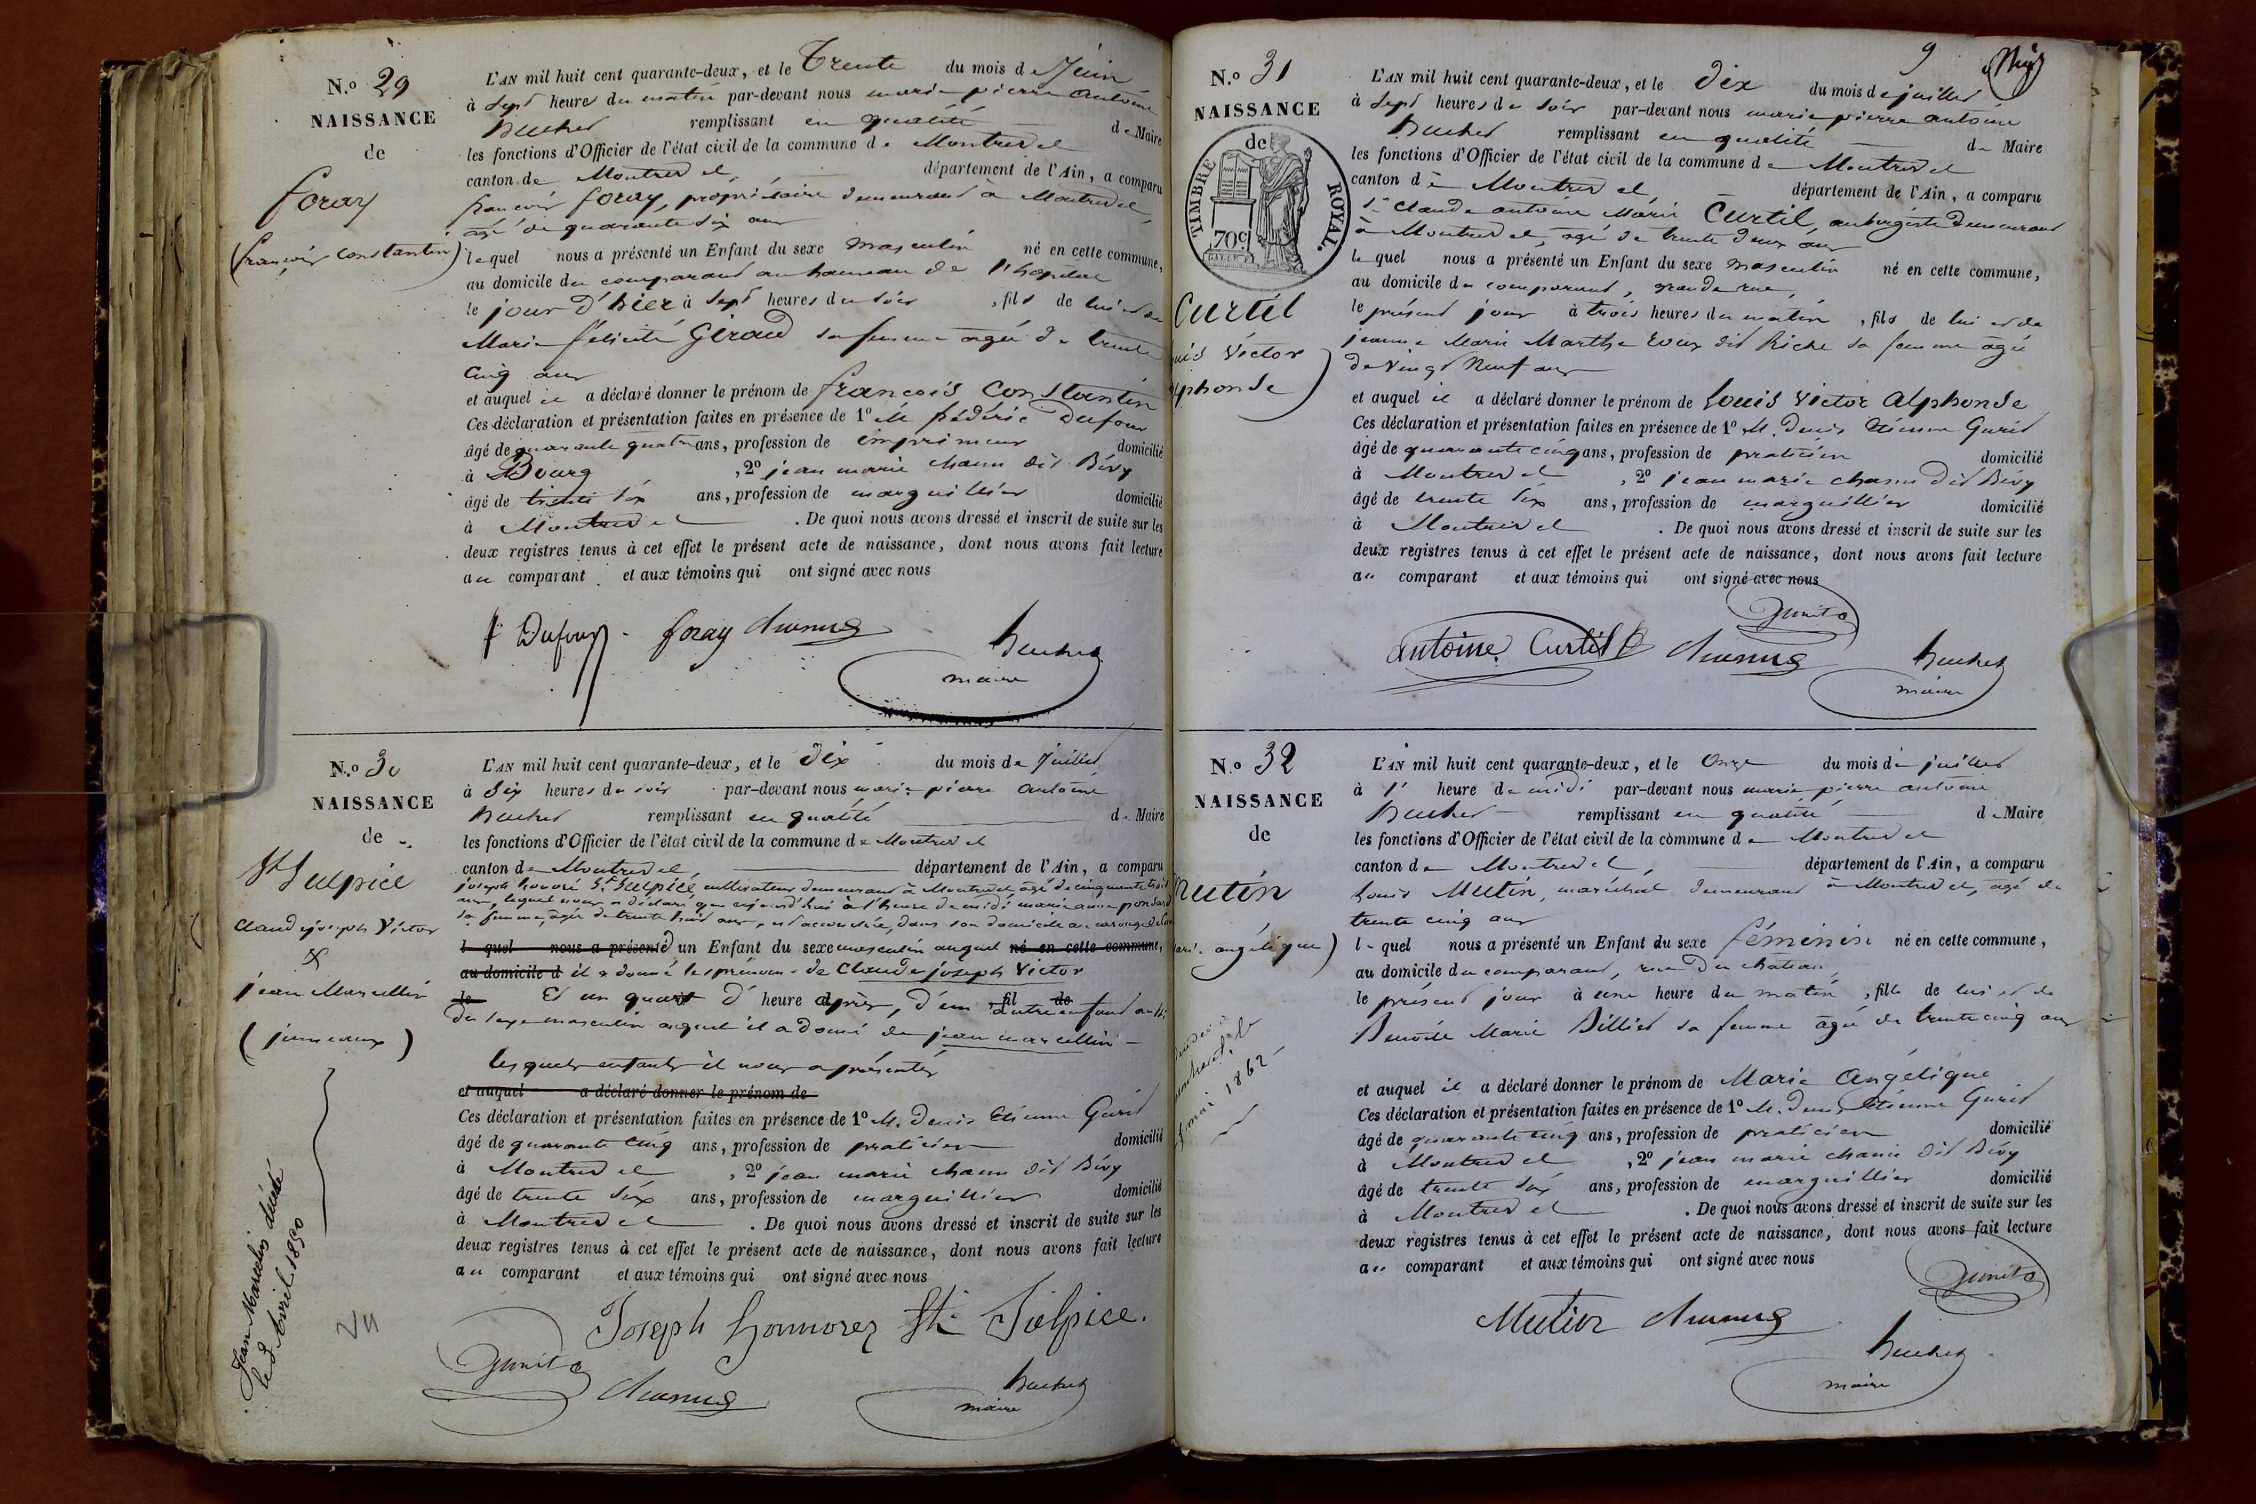 N.º 29
NAISSANCE
de
foray
(françois constantin)
L'AN mil huit cent quarante-deux, et le Trente du mois de Juin
à sept heures du matin par-devant nous marie pierre antoine
huchet remplissant en qualité de Maire
les fonctions d'Officier de l'état civil de la commune de Montrevel
canton de Montrevel, département de l'Ain, a comparu
françois foray, propriétaire demeurant à Montrevel,
agé de quarante six ans
lequel nous a présenté un Enfant du sexe masculin né en cette commune,
au domicile du comparant au hameau de l'hopital
le jour d'hier à sept heures du soir, fils de lui et de
Marie félicité Giraud sa femme agée de trente
cinq ans
et auquel il a déclaré donner le prénom de françois constantin
Ces déclaration et présentation faites en présence de 1º M. frédéric Dufour
âgé de quarante quatre ans, profession de imprimeur domicilié
à Bourg, 2º jean marie chanu dit Bévy
âgé de trente six ans, profession de marguillier domicilié
à Montrevel. De quoi nous avons dressé et inscrit de suite sur les
deux registres tenus à cet effet le présent acte de naissance, dont nous avons fait lecture
au comparant et aux témoins qui ont signé avec nous
Dufour foray
huchet
maire
N.º 30
NAISSANCE
de
St Sulpice
claude joseph Victor
X
jean Marcellin
(jumeaux)
Jean Marcelin décédé
le 3 Avril 1890
Vu
L'AN mil huit cent quarante-deux, et le dix du mois de juillet
à six heures du soir par-devant nous marie pierre antoine
huchet remplissant en qualité de Maire
les fonctions d'Officier de l'état civil de la commune de Montrevel
canton de Montrevel, département de l'Ain, a comparu
joseph honoré St Sulpice, cultivateur demeurant à Montrevel, agé de cinquante trois
ans, lequel nous a déclaré que aujourd'hui à l'heure de midi marie anne
sa femme, agée de trente huit ans, est accouchée, dans son domicile au
l quel nous a présenté d'un Enfant du sexe masculin auquel né en cette commune,
au domicile d il a donné les prénoms de Claude joseph Victor
le Et un quart d'heure après, d'un fil de autre enfant aussi
du sexe masculin auquel il a donné de jean marcellin
lesquels enfants il nous a présentés
et auquel a déclaré donner le prénom de
Ces déclaration et présentation faites en présence de 1º M. denis Etienne
âgé de quarante cinq ans, profession de praticien domicilié
à Montrevel, 2º jean marie chanu dit Bévy
âgé de trente six ans, profession de marguillier domicilié
à Montrevel. De quoi nous avons dressé et inscrit de suite sur les
deux registres tenus à cet effet le présent acte de naissance, dont nous avons fait lecture
au comparant et aux témoins qui ont signé avec nous
Joseph honnorez St Sulpice.
huchet
maire
9
N.º 31
NAISSANCE
de
TIMBRE ROYAL.
70c
Curtil
Victor
alphonse
L'AN mil huit cent quarante-deux, et le dix du mois de juillet
à sept heures du soir par-devant nous marie pierre antoine
huchet remplissant en qualité de Maire
les fonctions d'Officier de l'état civil de la commune de Montrevel
canton de Montrevel département de l'Ain, a comparu
Sr Claude antoine Marie Curtil, aubergiste demeurant
à Montrevel, agé de trente deux ans
lequel nous a présenté un Enfant du sexe masculin né en cette commune,
au domicile du comparant, grande rue,
le présent jour à trois heures du matin, fils de lui et de
jeanne Marie Marthe Roux dit Riche sa femme agée
de vingt Neuf ans
et auquel il a déclaré donner le prénom de Louis Victor alphonse
Ces déclaration et présentation faites en présence de 1º M. denis Etienne
âgé de quarante cinq ans, profession de praticien domicilié
à Montrevel, 2º jean marie chanu dit Bévy
âgé de trente six ans, profession de marguillier domicilié
à Montrevel. De quoi nous avons dressé et inscrit de suite sur les
deux registres tenus à cet effet le présent acte de naissance, dont nous avons fait lecture
au comparant et aux témoins qui ont signé avec nous
antoine Curtil
huchet
maire
N.º 32
NAISSANCE
de
Mutin
marie angélique)
mai 1862
L'AN mil huit cent quarante-deux, et le Onze du mois de juillet
à 1' heure de midi par-devant nous marie pierre antoine
huchet remplissant en qualité de Maire
les fonctions d'Officier de l'état civil de la commune de Montrevel
canton de Montrevel, département de l'Ain, a comparu
Louis Mutin, maréchal demeurant à Montrevel, agé de
trente cinq ans
lequel nous a présenté un Enfant du sexe féminin né en cette commune,
au domicile du comparant, rue du château,
le présent jour à une heure du matin, fille de lui et de
Benoîte Marie Billiet sa femme agée de trente cinq ans
et auquel il a déclaré donner le prénom de Marie Angélique
Ces déclaration et présentation faites en présence de 1º M. denis Etienne
âgé de quarante cinq ans, profession de praticien domicilié
à Montrevel, 2º jean marie chanu dit Bévy
âgé de trente six ans, profession de marguillier domicilié
à Montrevel. De quoi nous avons dressé et inscrit de suite sur les
deux registres tenus à cet effet le présent acte de naissance, dont nous avons fait lecture
au comparant et aux témoins qui ont signé avec nous
Mutin
huchet
maire